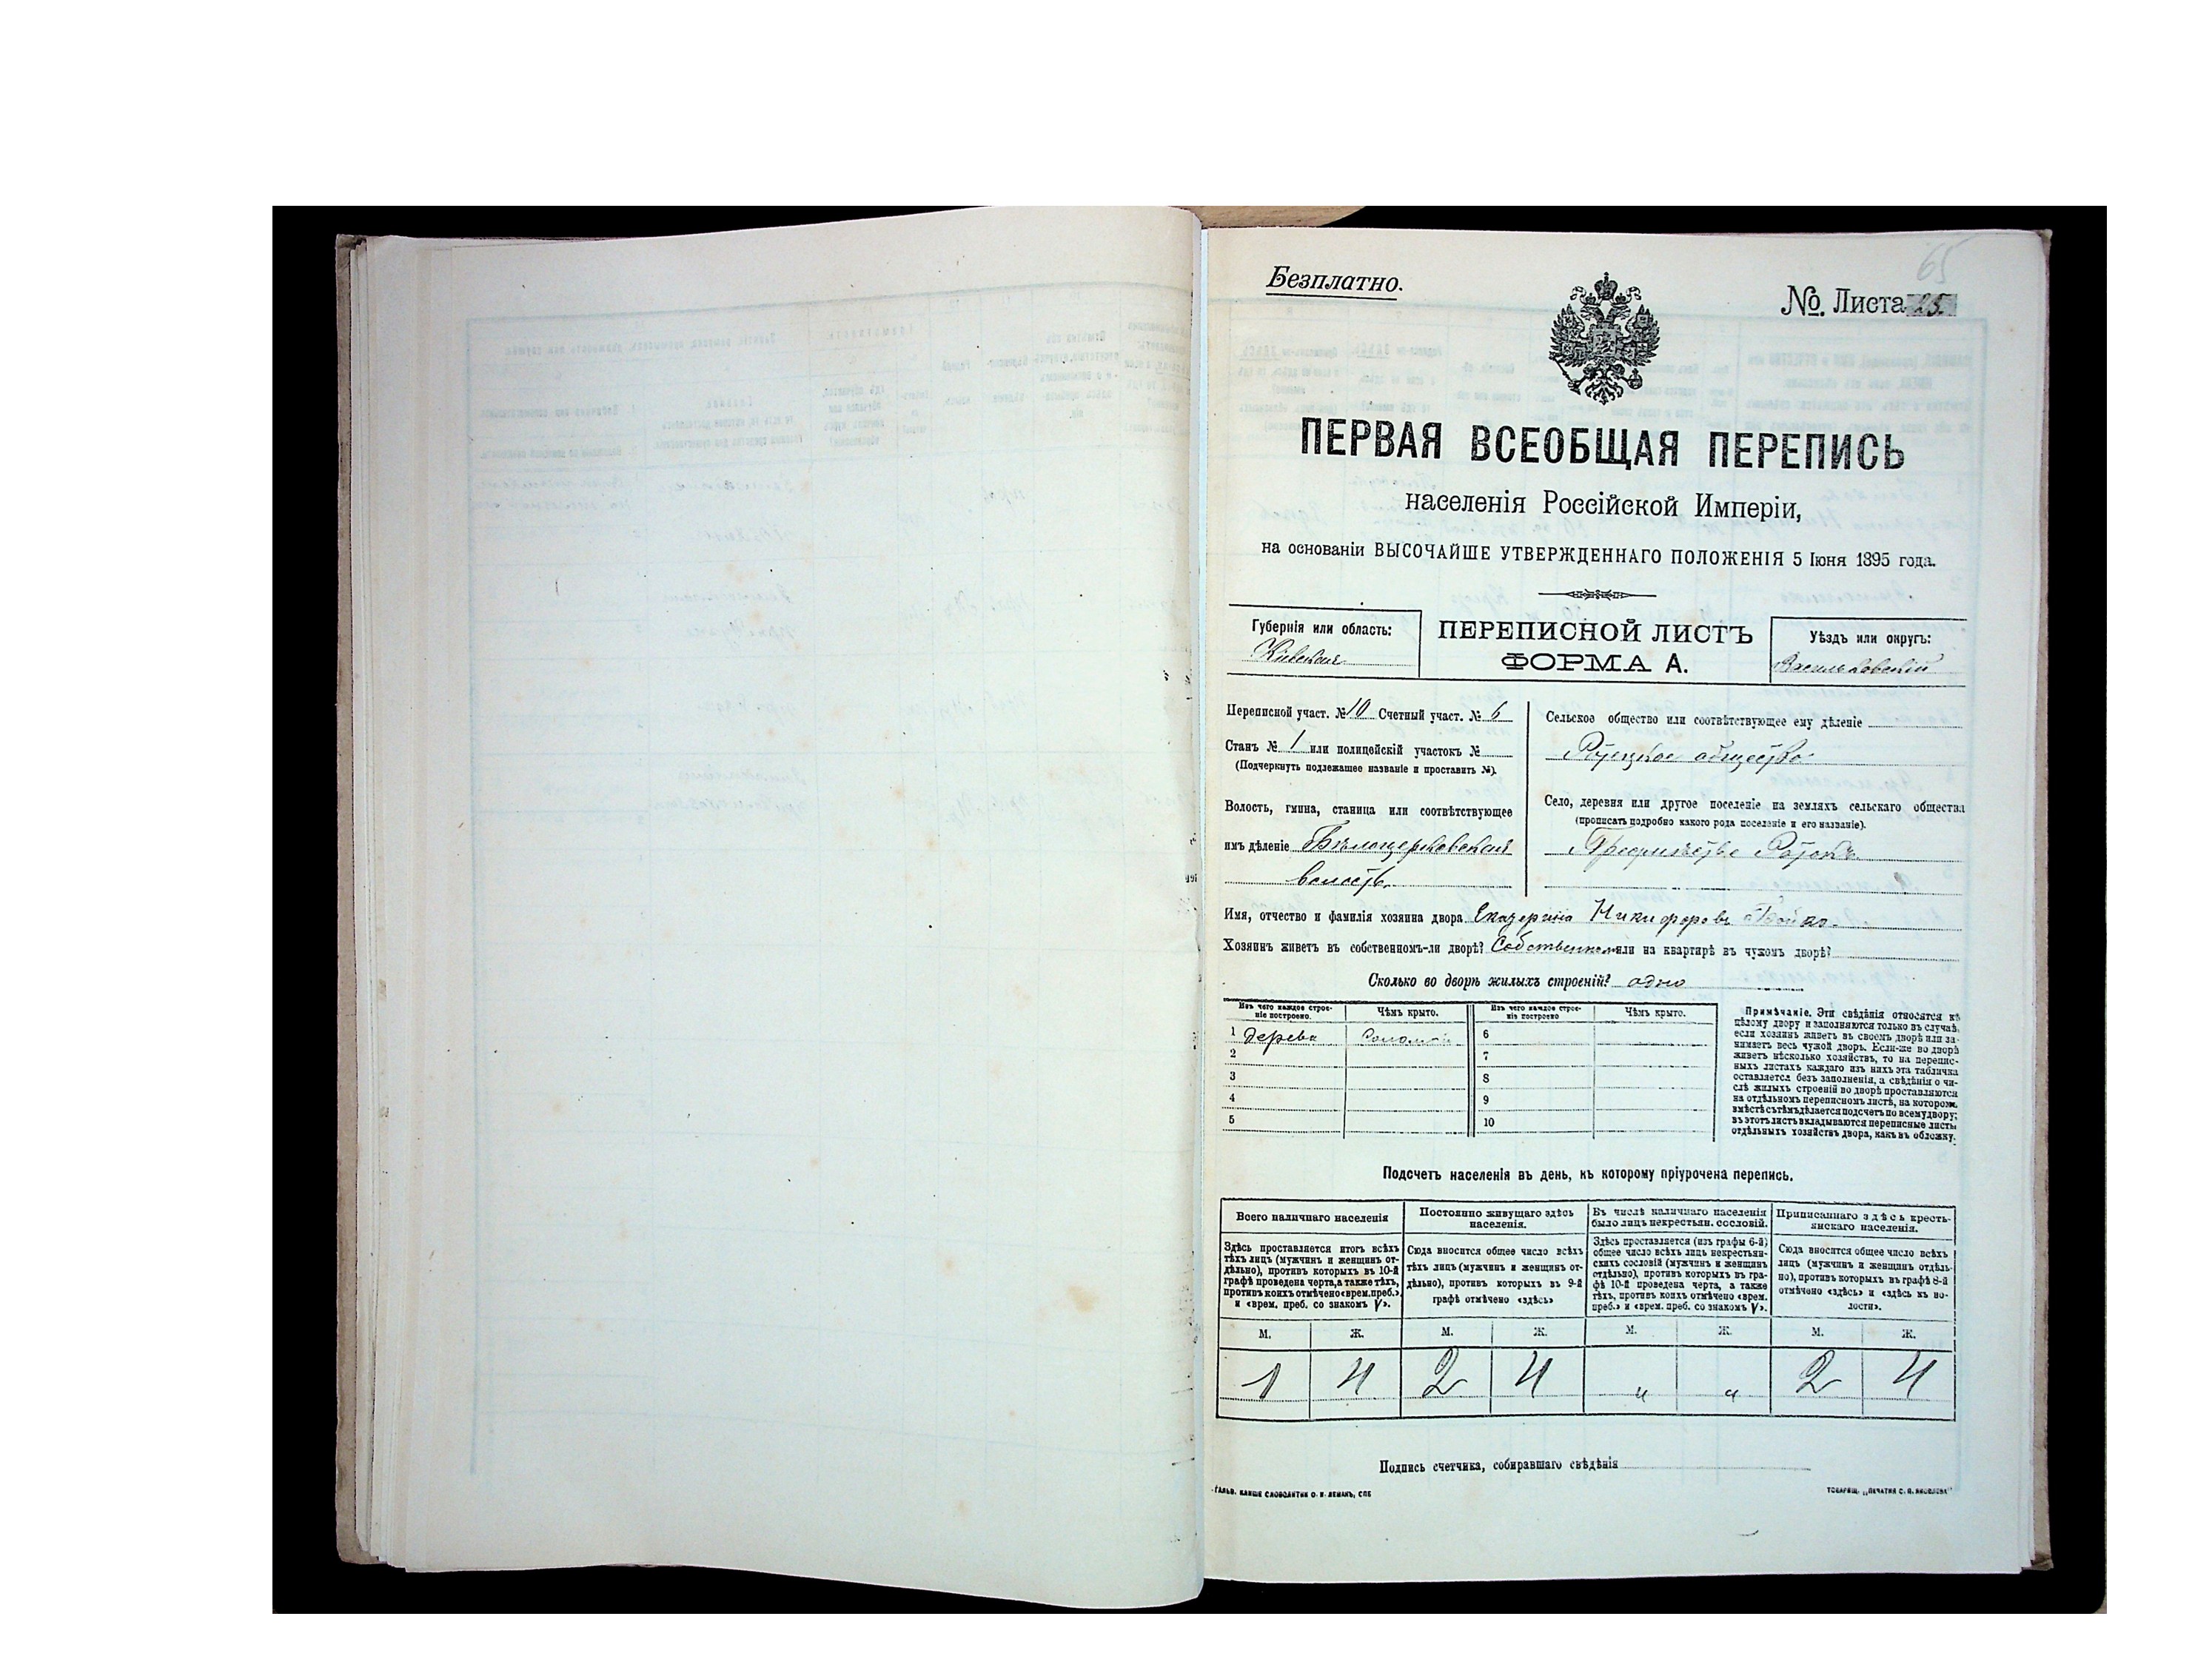 65
Безплатно.
№. Листа 25.
ПЕРВАЯ ВСЕОБЩАЯ ПЕРЕПИСЬ
населенія Россійской Имперіи,
на основаніи ВЫСОЧАЙШЕ УТВЕРЖДЕННАГО ПОЛОЖЕНІЯ 5 Іюня 1895 года.
Губернія или область:
Кіевская
ПЕРЕПИСНОЙ ЛИСТЪ
ФОРМА А.
Уѣздъ или округъ:
Васильковскій
Переписной участ. № 10 Счетный участ. № 6
Станъ № 1 или полицейскій участокъ №
(Подчеркнуть подлежащее названіе и проставить №).
Волость, гмина, станица или соотвѣтствующее
имъ дѣленіе Бѣлоцерковская
волость
Сельское общество или соотвѣтствующее ему дѣленіе
общество
Село, деревня или другое поселеніе на земляхъ сельскаго общества
(прописать подробно какого рода поселеніе и его названіе).
Предмѣстье Ротокъ
Имя, отчество и фамилія хозяина двора Екатерина Никифоровъ Бойко.
Хозяинъ живетъ въ собственномъ-ли дворѣ? Собственномъ или на квартирѣ въ чужомъ дворѣ?
Сколько во дворѣ жилыхъ строеній? одно
Изъ чего каждое строе-
ніе построено.
Чѣмъ крыто.
Изъ чего каждое строе-
ніе построено
Чѣмъ крыто.
1 дерева Соломой 6
2 7
3 8
4 9
5 10
Примѣчаніе. Эти свѣдѣнія относятся къ
цѣлому двору и заполняются только въ случаѣ,
если хозяинъ живетъ въ своемъ дворѣ или за-
нимаетъ весь чужой дворъ. Если-же во дворѣ
живетъ нѣсколько хозяйствъ, то на перепис-
ныхъ листахъ каждаго изъ нихъ эта табличка
оставляется безъ заполненія, а свѣдѣнія о чи-
слѣ жилыхъ строеній во дворѣ проставляются
на отдѣльномъ переписномъ листѣ, на которомъ
вмѣстѣ съ тѣмъ дѣлается подсчетъ по всему двору;
въ этотъ листъ вкладываются переписные листы
отдѣльныхъ хозяйствъ двора, какъ въ обложку.
Подсчетъ населенія въ день, къ которому пріурочена перепись.
Всего наличнаго населенія
Здѣсь проставляется итогъ всѣхъ
тѣхъ лицъ (мужчинъ и женщинъ от-
дѣльно), противъ которыхъ въ 10-й
графѣ проведена черта, а также тѣхъ,
противъ коихъ отмѣчено «врем. преб.»
и «врем. преб. со знакомъ V».
Постоянно живущаго здѣсь
населенія.
Сюда вносится общее число всѣхъ
тѣхъ лицъ (мужчинъ и женщинъ от-
дѣльно), противъ которыхъ въ 9-й
графѣ отмѣчено «здѣсь»
Въ числѣ наличнаго населенія
было лицъ некрестьян. сословій.
Здѣсь проставляется (изъ графы 6-й)
общее число всѣхъ лицъ некрестьян-
скихъ сословій (мужчинъ и женщинъ
отдѣльно), противъ которыхъ въ гра-
фѣ 10-й проведена черта, а также
тѣхъ, противъ коихъ отмѣчено «врем.
преб.» и «врем. преб. со знакомъ V».
Приписаннаго здѣсь кресть-
янскаго населенія.
Сюда вносится общее число всѣхъ
лицъ (мужчинъ и женщинъ отдѣль-
но), противъ которыхъ въ графѣ 8-й
отмѣчено «здѣсь» и «здѣсь къ во-
лости».
М. Ж. М. Ж. М. Ж. М. Ж.
1 4 2 4 " " 2 4
Подпись счетчика, собиравшаго свѣдѣнія
ГАЛЬВ. КЛИШЕ СЛОВОЛИТНИ О. И. ЛЕМАНЪ, СПБ
ТОВАРИЩ. „ПЕЧАТНЯ С. П. ЯКОВЛЕВА"